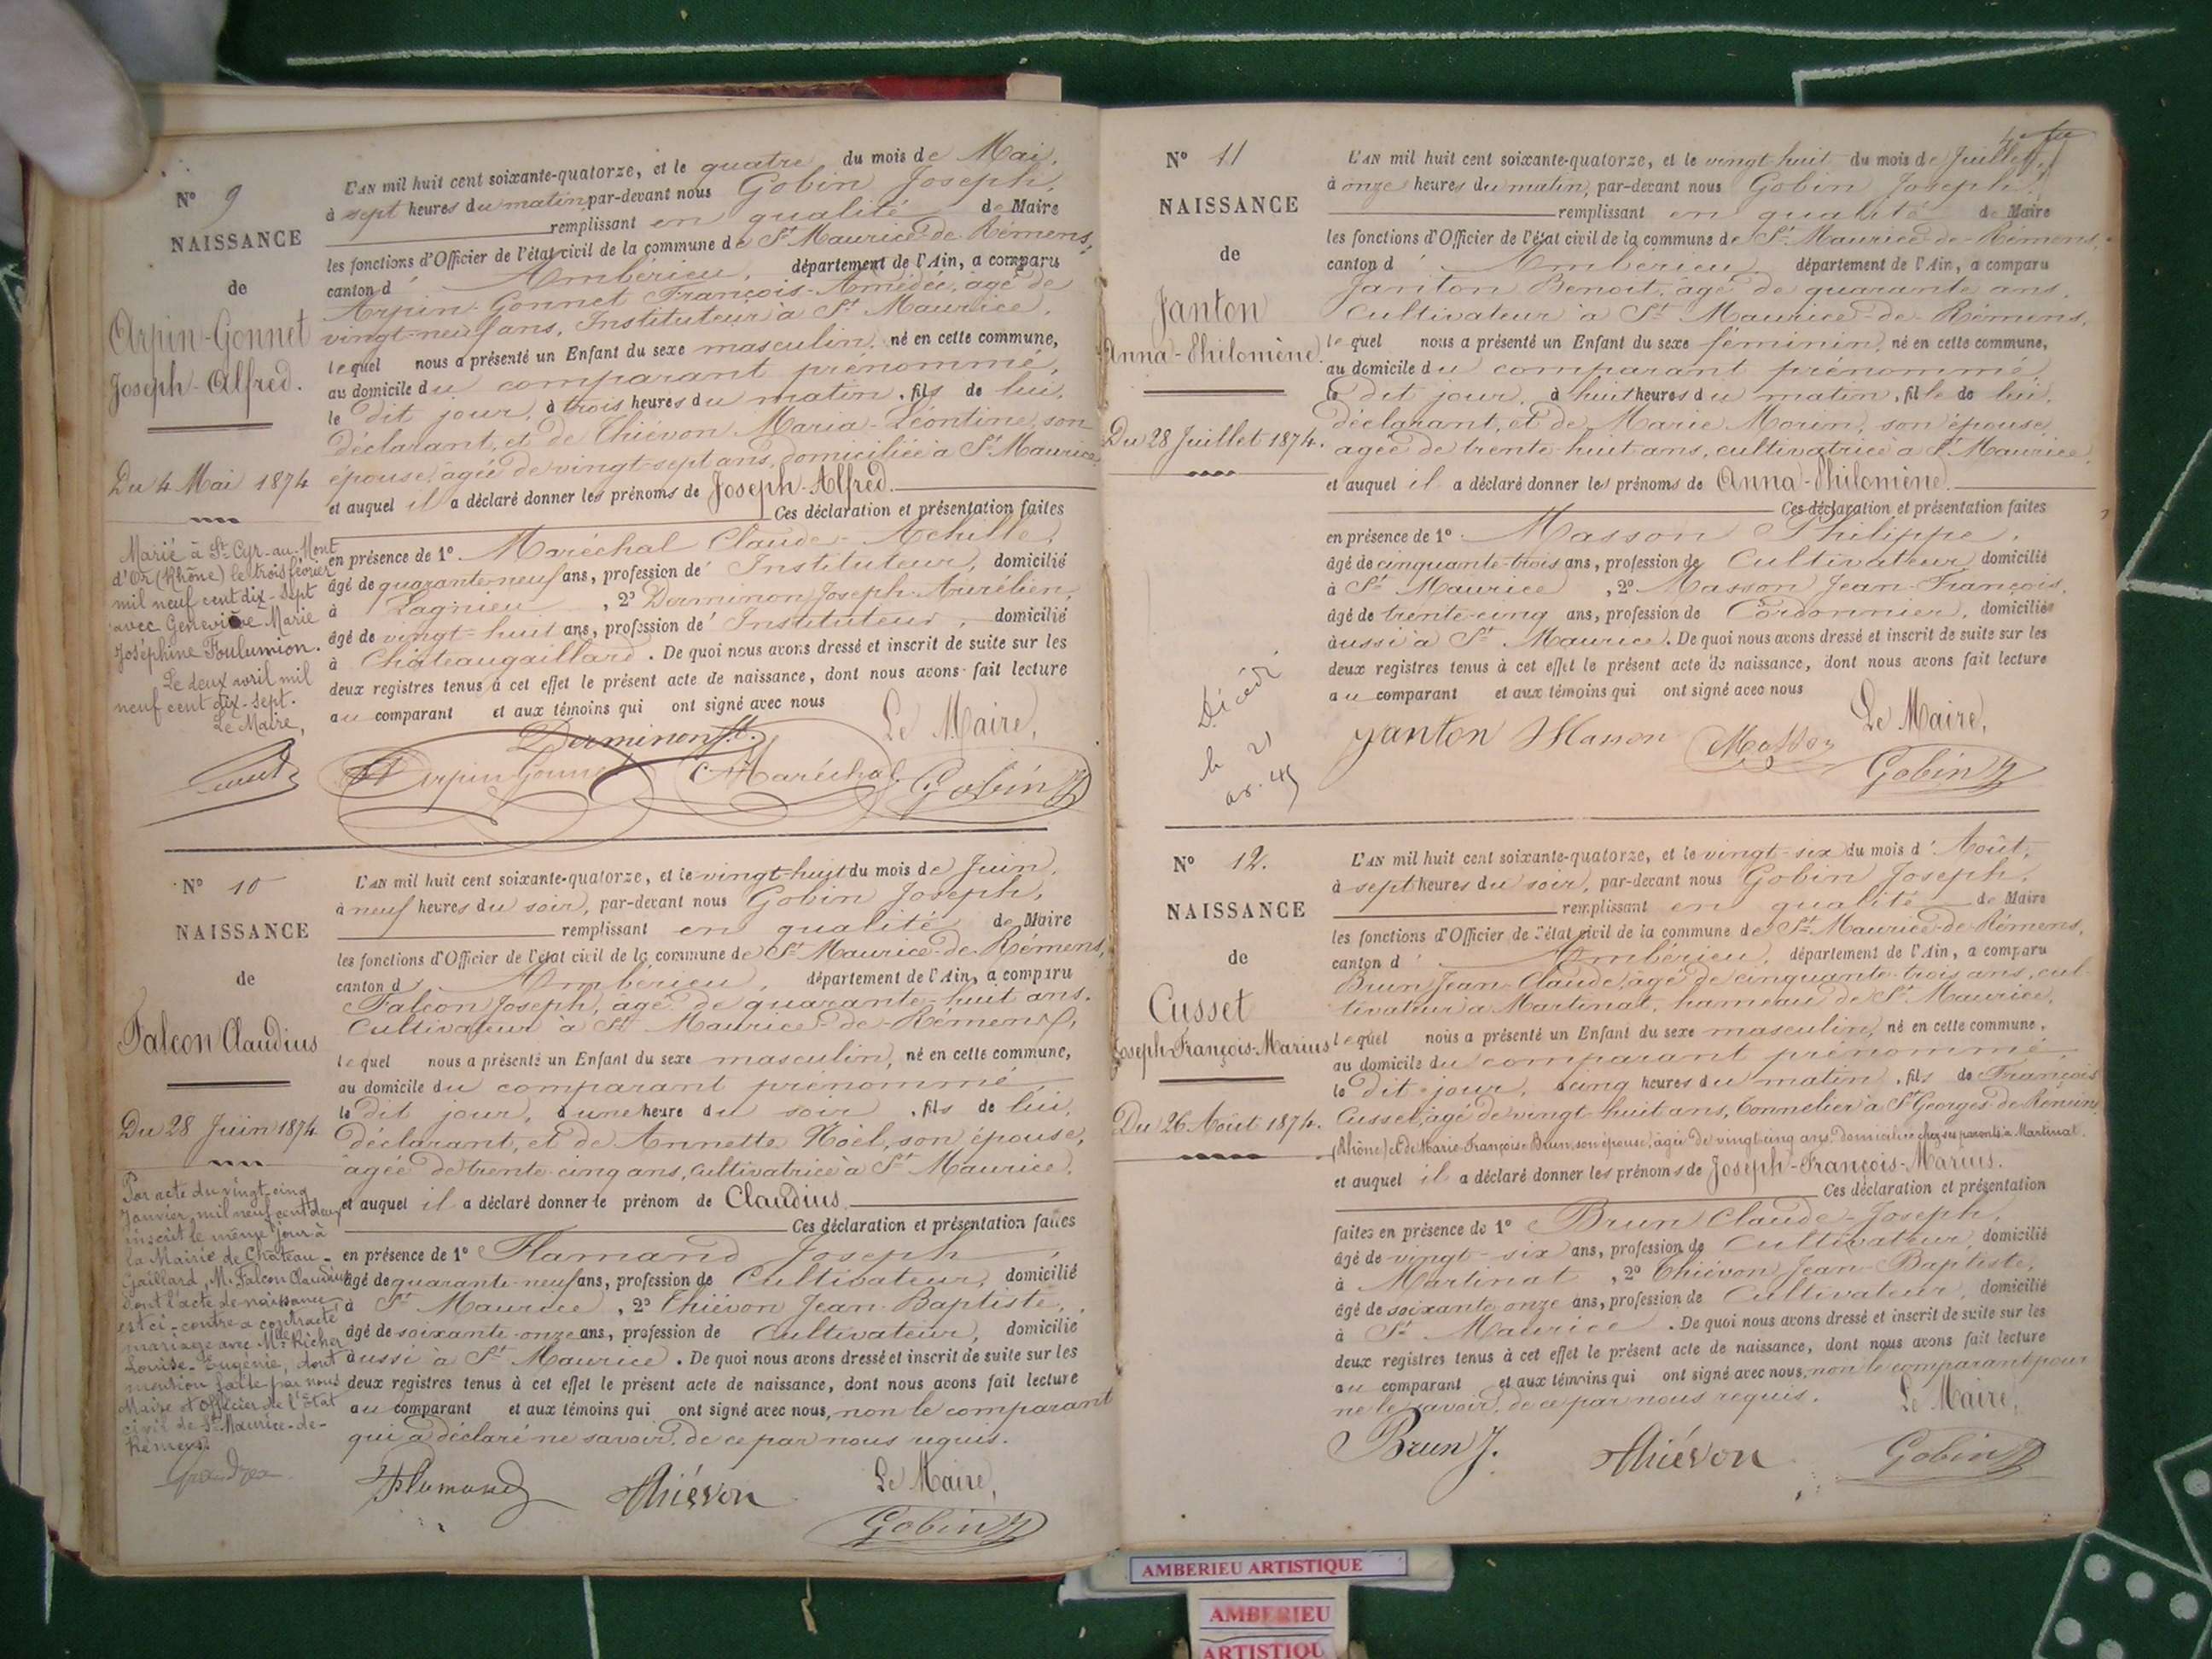 N° 9
NAISSANCE
de
Arpin-Gonnet
Joseph-Alfred.
Du 4 Mai 1874
Marié à St-Cyr-au-Mont
d'Or (Rhône) le trois février
mil neuf cent dix-sept
avec Geneviève Marie
Joséphine Foulumion.
Le deux avril mil
neuf cent dix-sept.
Le Maire,
L'AN mil huit cent soixante-quatorze, et le quatre du mois de Mai,
à sept heures du matin par-devant nous Gobin Joseph,
remplissant en qualité de Maire
les fonctions d'Officier de l'état civil de la commune de St Maurice-de-Rémens,
canton d'Ambérieu, département de l'Ain, a comparu
Arpin-Gonnet François-Amédée, âgé de
vingt-neuf ans, Instituteur à St Maurice,
lequel nous a présenté un Enfant du sexe masculin, né en cette commune,
au domicile du comparant prénommé,
le dit jour, à trois heures du matin, fils de lui,
déclarant, et de Thiévon Maria-Léontine, son
épouse, âgée de vingt-sept ans, domiciliée à St Maurice
et auquel il a déclaré donner les prénoms de Joseph-Alfred.
Ces déclaration et présentation faites
en présence de 1° Maréchal Claude-Achille,
âgé de quarante-neuf ans, profession de Instituteur, domicilié
à Lagnieu, 2° Derminon Joseph-Aurélien,
âgé de vingt-huit ans, profession de Instituteur, domicilié
à Châteaugaillard. De quoi nous avons dressé et inscrit de suite sur les
deux registres tenus à cet effet le présent acte de naissance, dont nous avons fait lecture
au comparant et aux témoins qui ont signé avec nous
Le Maire,
Derminon
Arpin Gonnet Maréchal Gobin
N° 10
NAISSANCE
de
Falcon Claudius
Du 28 Juin 1874.
Par acte du vingt-cinq
Janvier mil neuf cent deux
inscrit le même jour à
la Mairie de Château-
Gaillard, M. Falcon Claudius
dont l'acte de naissance
est ci-contre a contracté
mariage avec Mlle Richer
Louise-Eugénie, dont
mention faite par nous
Maire et Officier de l'Etat
civil de St-Maurice-de-
Rémens.
L'AN mil huit cent soixante-quatorze, et le vingt-huit du mois de Juin,
à neuf heures du soir, par-devant nous Gobin Joseph,
remplissant en qualité de Maire
les fonctions d'Officier de l'état civil de la commune de St Maurice-de-Rémens,
canton d'Ambérieu, département de l'Ain, a comparu
Falcon Joseph, âgé de quarante-huit ans,
Cultivateur à St Maurice-de-Rémens,
lequel nous a présenté un Enfant du sexe masculin, né en cette commune,
au domicile du comparant prénommé,
le dit jour, à une heure du soir, fils de lui,
déclarant, et de Annette Noël, son épouse,
âgée de trente-cinq ans, cultivatrice à St Maurice,
et auquel il a déclaré donner le prénom de Claudius.
Ces déclaration et présentation faites
en présence de 1° Flamand Joseph,
âgé de quarante-neuf ans, profession de Cultivateur, domicilié
à St Maurice, 2° Thiévon Jean-Baptiste,
âgé de soixante-onze ans, profession de Cultivateur, domicilié
aussi à St Maurice. De quoi nous avons dressé et inscrit de suite sur les
deux registres tenus à cet effet le présent acte de naissance, dont nous avons fait lecture
au comparant et aux témoins qui ont signé avec nous, non le comparant
qui a déclaré ne savoir, de ce par nous requis.
Le Maire,
Flamand Thiévon Gobin
N° 11
NAISSANCE
de
Janton
Anna-Philomène.
Du 28 Juillet 1874.
Décédé
L'AN mil huit cent soixante-quatorze, et le vingt-huit du mois de Juillet,
à onze heures du matin, par-devant nous Gobin Joseph,
remplissant en qualité de Maire
les fonctions d'Officier de l'état civil de la commune de St Maurice-de-Rémens,
canton d'Ambérieu, département de l'Ain, a comparu
Janton Benoit, âgé de quarante ans,
Cultivateur à St Maurice-de-Rémens,
lequel nous a présenté un Enfant du sexe féminin, né en cette commune,
au domicile du comparant prénommé,
le dit jour, à huit heures du matin, fille de lui,
déclarant, et de Marie Morin, son épouse
âgée de trente-huit ans, cultivatrice à St Maurice,
et auquel il a déclaré donner les prénoms de Anna-Philomène.
Ces déclaration et présentation faites
en présence de 1° Masson Philippe,
âgé de cinquante-trois ans, profession de Cultivateur, domicilié
à St Maurice, 2° Masson Jean-François,
âgé de trente-cinq ans, profession de Cordonnier, domiciliés
aussi à St Maurice. De quoi nous avons dressé et inscrit de suite sur les
deux registres tenus à cet effet le présent acte de naissance, dont nous avons fait lecture
au comparant et aux témoins qui ont signé avec nous
Le Maire,
Janton Masson Masson
Gobin
N° 12.
NAISSANCE
de
Cusset
Joseph-François-Marius
Du 26 Août 1874.
L'AN mil huit cent soixante-quatorze, et le vingt-six du mois d'Août,
à sept heures du soir, par-devant nous Gobin Joseph,
remplissant en qualité de Maire
les fonctions d'Officier de l'état civil de la commune de St Maurice-de-Rémens,
canton d'Ambérieu, département de l'Ain, a comparu
Brun Jean-Claude, âgé de cinquante-trois ans, cul-
tivateur à Martinat, hameau de St Maurice,
lequel nous a présenté un Enfant du sexe masculin, né en cette commune,
au domicile du comparant prénommé,
le dit jour, à cinq heures du matin, fils de François
Cusset, âgé de vingt-huit ans, Tonnelier à St Georges de Reneins
(Rhône) et de Marie-Françoise Brun, son épouse, âgée de vingt-cinq ans, domiciliée chez ses parents à Martinat.
et auquel il a déclaré donner les prénoms de Joseph-François-Marius.
Ces déclaration et présentation
faites en présence de 1° Brun Claude-Joseph,
âgé de vingt-six ans, profession de Cultivateur, domicilié
à Martinat, 2° Thiévon Jean-Baptiste,
âgé de soixante-onze ans, profession de Cultivateur, domicilié
à St Maurice. De quoi nous avons dressé et inscrit de suite sur les
deux registres tenus à cet effet le présent acte de naissance, dont nous avons fait lecture
au comparant et aux témoins qui ont signé avec nous, non le comparant pour
ne le savoir, de ce par nous requis.
Le Maire,
Brun J. Thiévon Gobin
AMBERIEU ARTISTIQUE
AMBERIEU
ARTISTIQU